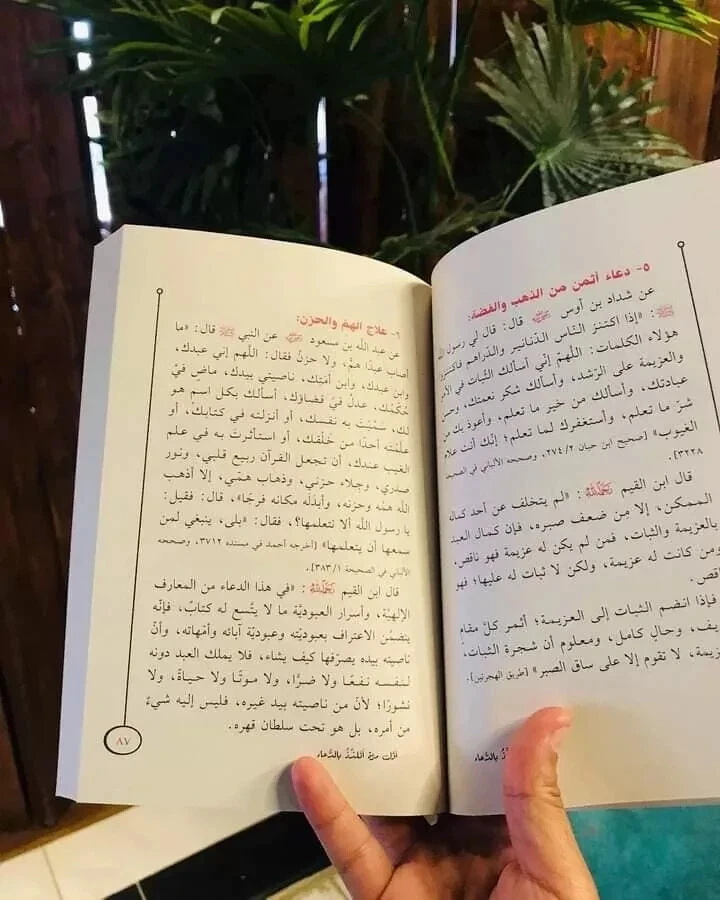 ٥- دعاء أثمن من الذهب والفضة:
عن شداد بن أوس رضي الله عنه قال: قال لي رسول الله
ﷺ: «إذا اكتنزَ النّاس الدّنانير والدّراهم فاكتنزوا
هؤلاء الكلمات: اللّهمّ إنّي أسألك الثّبات في الأمر
والعزيمة على الرّشد، وأسألك شكر نعمتك، وحسن
عبادتك، وأسألك من خير ما تعلم، وأعوذ بك من
شرّ ما تعلم، وأستغفرك لما تعلم؛ إنّك أنت علام
الغيوب» [صحيح ابن حبان ٢٧٤/٢، وصححه الألباني في الصحيحة
٣٢٢٨].
قال ابن القيم رحمه الله: «لم يتخلف عن أحد كمال
الممكن، إلا مِن ضعف صبره، فإن كمال العبد
بالعزيمة والثبات، فمن لم يكن له عزيمة فهو ناقص.
ومن كانت له عزيمة، ولكن لا ثبات له عليها؛ فهو
ناقص.
فإذا انضم الثبات إلى العزيمة؛ أثمر كلّ مقام
يف، وحالٍ كامل، ومعلوم أن شجرة الثبات،
زيمة، لا تقوم إلا على ساق الصبر» [طريق الهجرتين].
ذُ بالدُّعاء
٦- علاج الهمّ والحزن:
عن عبد الله بن مسعود رضي الله عنه عن النبي ﷺ قال: «ما
أصاب عبدًا همٌّ، ولا حزنٌ فقال: اللّهم إني عبدك،
وابن عبدك، وابن أمَتِك، ناصيتي بيدك، ماضٍ فيَّ
حُكمُك، عدلٌ فيّ قضاؤك، أسألك بكل اسم هو
لك، سَمّيْتَ به نفسك، أو أنزلته في كتابك، أو
علّمْتَه أحدًا من خَلْقك، أو استأثرتَ به في علم
الغيب عندك، أن تجعل القرآن ربيع قلبي، ونور
صدري، وجلاء حزني، وذهاب همّي، إلا أذهب
اللّه همّه وحزنه، وأبدَلَه مكانه فرجًا»، قال: فقيل:
يا رسول اللّه ألا نتعلمها؟، فقال: «بلى، ينبغي لمن
سمعها أن يتعلمها» [أخرجه أحمد في مسنده ٣٧١٢، وصححه
الألباني في الصحيحة ٣٨٣/١].
قال ابن القيم رحمه الله: «في هذا الدعاء من المعارف
الإلهيّة، وأسرار العبوديّة ما لا يتّسع له كتابٌ، فإنّه
يتضمّن الاعتراف بعبوديّته وعبوديّة آبائه وأمّهاته، وأنّ
ناصيته بيده يصرّفها كيف يشاء، فلا يملك العبد دونه
لنفسه نفعًا ولا ضرًا، ولا موتًا ولا حياةً، ولا
نشورًا؛ لأنّ من ناصيته بيد غيره، فليس إليه شيءٌ
من أمره، بل هو تحت سلطان قهره.
٨٧